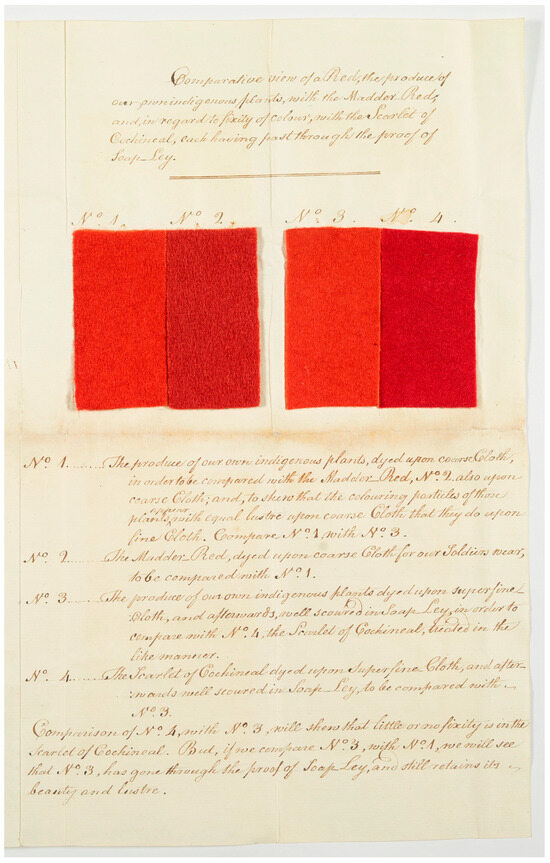 Comparative view of a Red, the produce of
our own indigenous plants, with the Madder Red;
and, in regard to fixity of colour, with the Scarlet of
Cochineal, each having past through the proof of
Soap-Ley.
No. 1. No. 2. No. 3. No. 4.
No. 1. ...... The produce of our own indigenous plants, dyed upon coarse Cloth,
in order to be compared with the Madder Red, No. 2. also upon
coarse Cloth; and, to shew that the colouring particles of these
appear
plants, with equal lustre upon coarse Cloth that they do upon
fine Cloth. Compare No. 1. with No. 3.
No. 2. ...... The Madder Red, dyed upon coarse Cloth for our Soldiers wear,
to be compared with No. 1.
No. 3. ...... The produce of our own indigenous plants dyed upon superfine
Cloth, and afterwards, well scoured in Soap Ley, in order to
compare with No. 4, the Scarlet of Cochineal, treated in the
like manner.
No. 4. ...... The Scarlet of Cochineal dyed upon Superfine Cloth, and after-
wards well scoured in Soap Ley, to be compared with
No. 3.
Comparison of No. 4, with No. 3, will shew that little or no fixity is in the
Scarlet of Cochineal. But, if we compare No. 3, with No. 1, we will see
that No. 3, has gone through the proof of Soap Ley, and still retains its
beauty and lustre.